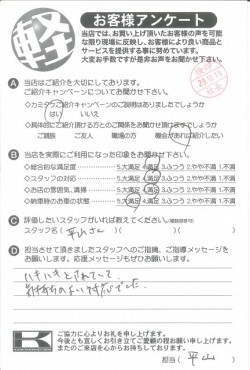 軽
お客様アンケート
当店では、お買い上げ頂いたお客様の声を可能な
限り現場に反映し、お客様により良い商品と
サービスを提供する事に努めています。
大変お手数ですが是非お声をお聞かせ下さい。
A 当店はご紹介を大切にしております。
ご紹介キャンペーンについてお聞かせ下さい。
はい いいえ
ご親族 ご友人 職場の方 機会があれば紹介したい
B 当店を実際にご利用になった印象をお聞かせ下さい。
◇総合的な満足度 5.大満足 4.満足 3.ふつう 2.やや不満 1.不満
◇スタッフの対応 5.大満足 4.満足 3.ふつう 2.やや不満 1.不満
◇お店の雰囲気、清掃 5.大満足 4.満足 3.ふつう 2.やや不満 1.不満
◇納車時のお車の状態 5.大満足 4.満足 3.ふつう 2.やや不満 1.不満
C 評価したいスタッフがいれば教えてください。
スタッフ名( 平山さん )
D 担当させて頂きましたスタッフへのご指摘、ご指導メッセージを
お願いします。応援メッセージもぜひお願いします。
ハキハキとされていて
気持ちのよい対応でした。
K
ご協力に心よりお礼を申し上げます。
今後とも宜しくお引き立てご愛顧の程お願い申し上げます。
またのご来店を心からお待ちしております。
担当( 平山 )